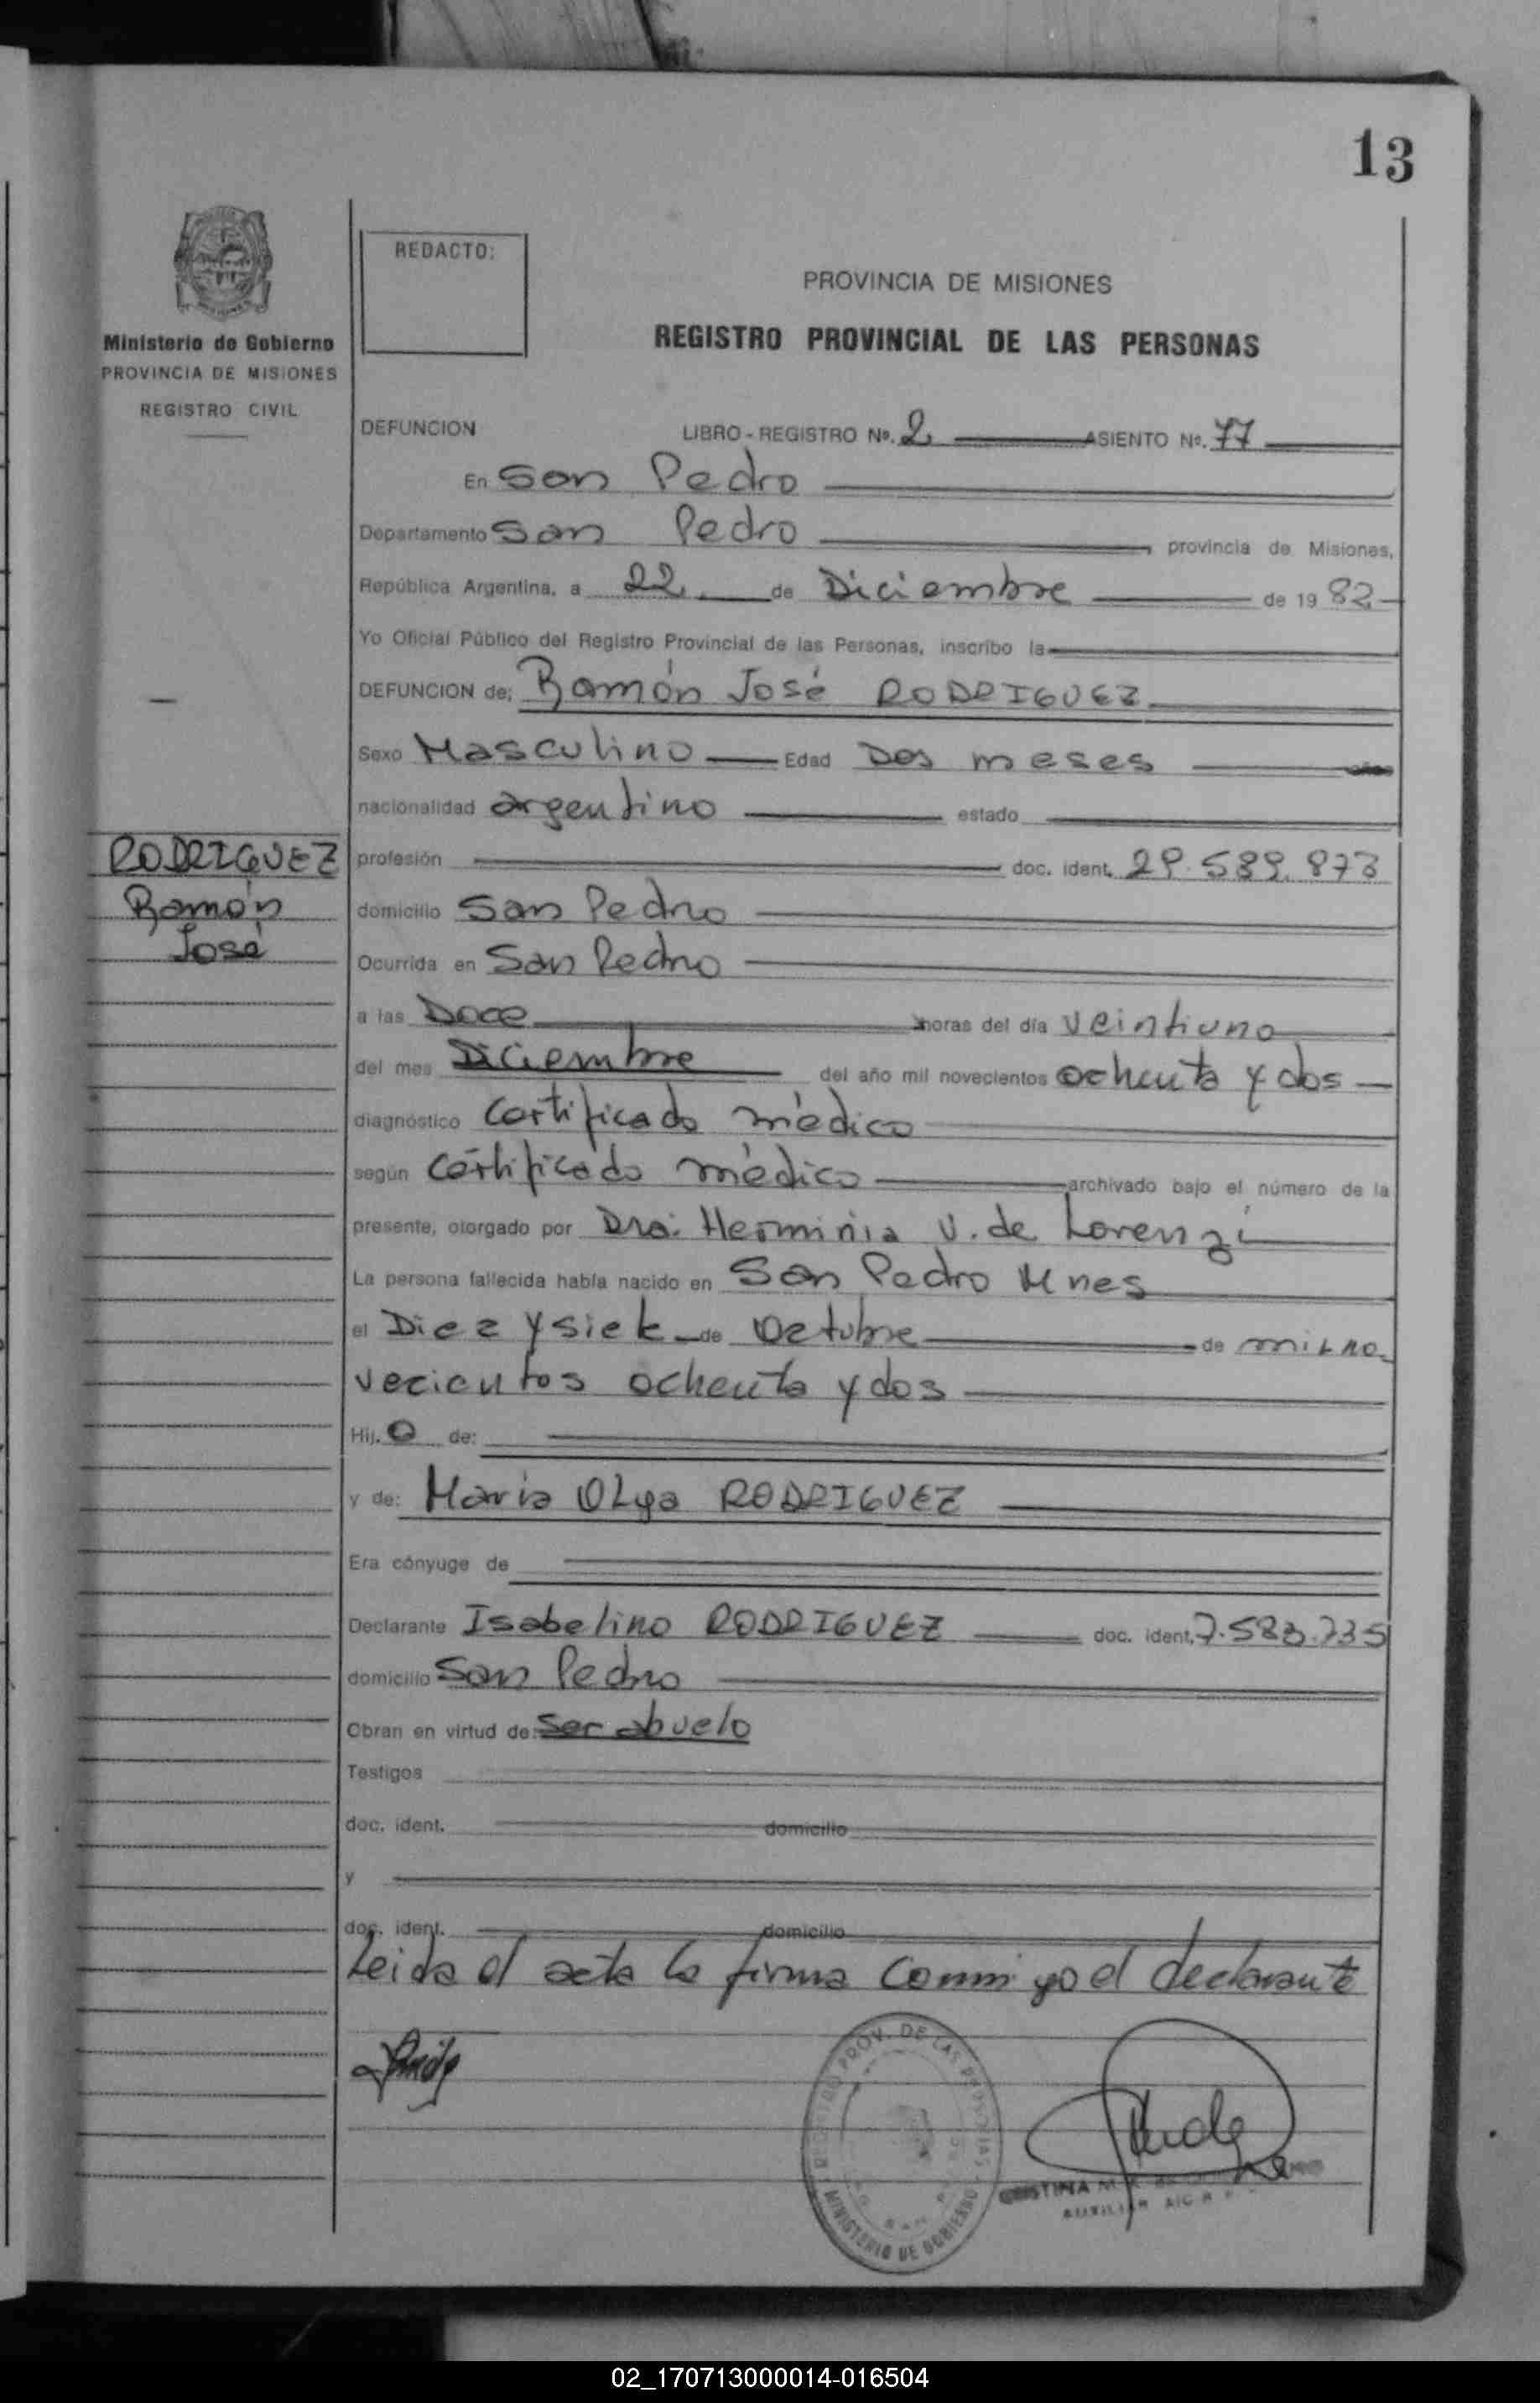 13
REDACTO:
PROVINCIA DE MISIONES
REGISTRO PROVINCIAL DE LAS PERSONAS
Ministerio de Gobierno
PROVINCIA DE MISIONES
REGISTRO CIVIL
DEFUNCION LIBRO - REGISTRO Nº. 2 ASIENTO Nº. 77
En San Pedro
Departamento San Pedro provincia de Misiones,
República Argentina, a 22 de Diciembre de 19 82
Yo Oficial Público del Registro Provincial de las Personas, inscribo la
DEFUNCION de: Ramón José RODRIGUEZ
Sexo Masculino Edad Dos meses
nacionalidad argentino estado
RODRIGUEZ
Ramón
José
profesión doc. ident. 29.589.873
domicilio San Pedro
Ocurrida en San Pedro
a las Doce horas del día veintiuno
del mes Diciembre del año mil novecientos ochenta y dos
diagnóstico Certificado médico
según Certificado médico archivado bajo el número de la
presente, otorgado por Dra. Herminia V. de Lorenzi
La persona fallecida había nacido en San Pedro Mnes
el Diez y siete de Octubre de mil no
vecientos ochenta y dos
Hij. o de:
y de: Maria Olga RODRIGUEZ
Era cónyuge de
Declarante Isabelino RODRIGUEZ doc. ident. 7.583.735
domicilio San Pedro
Obran en virtud de: ser abuelo
Testigos
doc. ident. domicilio
y
doc. ident. domicilio
Leida el acta la firma conmigo el declarante
PROV. DE LAS
MINISTERIO DE GOBIERNO
CRISTINA M.
AUXILIAR
02_170713000014-016504